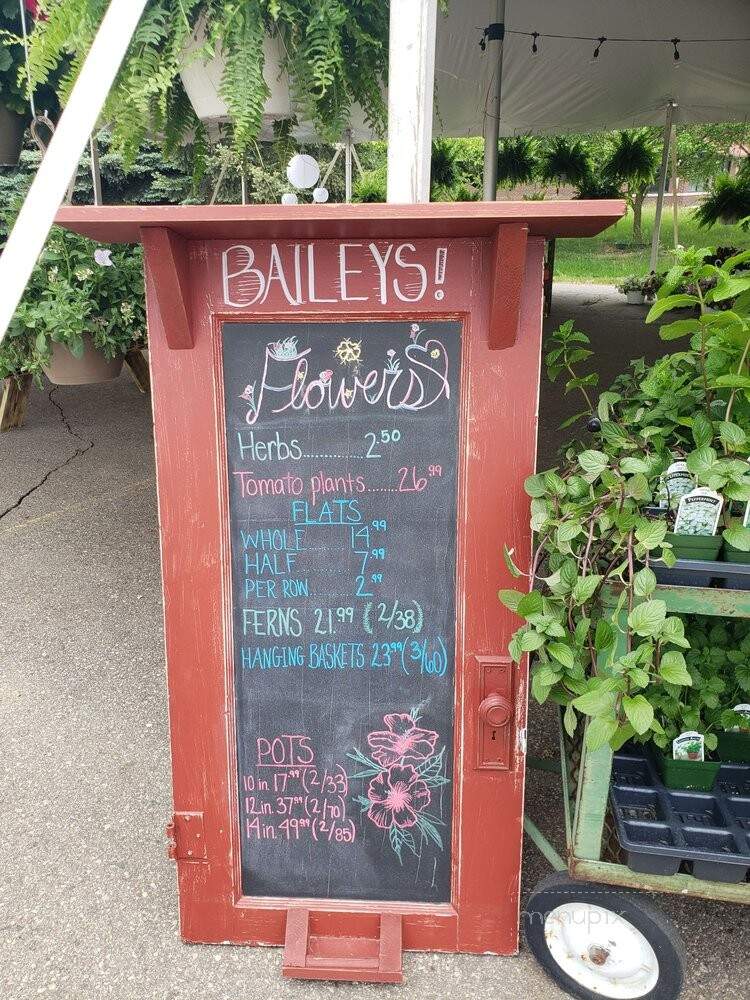 BAILEYS!
Flowers
Herbs............2.50
Tomato plants......26.99
FLATS
WHOLE..........14.99
HALF..........7.99
PER ROW........2.99
FERNS 21.99 (2/38)
HANGING BASKETS 23.99 (3/60)
POTS
10 in. 17.99 (2/33)
12 in. 37.99 (2/70)
14 in. 49.99 (2/85)
PEPPERMINT
menupix